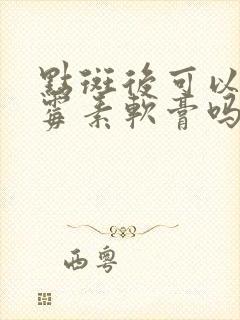 點斑後可以
霉素軟膏吗
西粵